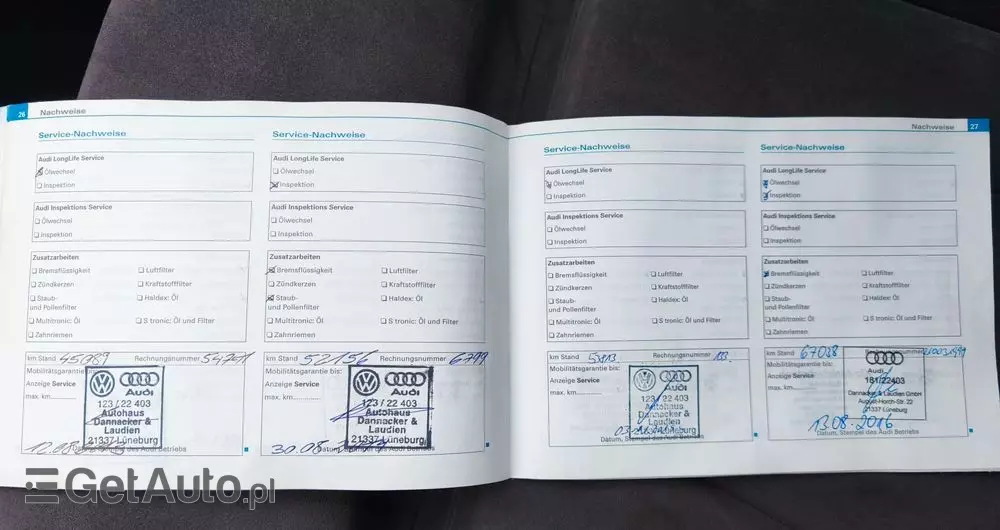 26 Nachweise
Service-Nachweise
Audi LongLife Service
Ölwechsel
Inspektion
Audi Inspektions Service
Ölwechsel
Inspektion
Zusatzarbeiten
Bremsflüssigkeit Luftfilter
Zündkerzen Kraftstofffilter
Staub- Haldex: Öl
und Pollenfilter
Multitronic: Öl S tronic: Öl und Filter
Zahnriemen
km Stand Rechnungsnummer
Mobilitätsgarantie bis:
Anzeige Service
max. km
Audi
123/22 403
Autohaus
Dannacker &
Laudien
21337 Lüneburg
Datum, Stempel des Audi Betriebs
Service-Nachweise
Audi LongLife Service
Ölwechsel
Inspektion
Audi Inspektions Service
Ölwechsel
Inspektion
Zusatzarbeiten
Bremsflüssigkeit Luftfilter
Zündkerzen Kraftstofffilter
Staub- Haldex: Öl
und Pollenfilter
Multitronic: Öl S tronic: Öl und Filter
Zahnriemen
km Stand 52156 Rechnungsnummer 6799
Mobilitätsgarantie bis:
Anzeige Service
max. km
Audi
123/22 403
Autohaus
Dannacker &
Laudien
21337 Lüneburg
30.08
Datum, Stempel des Audi Betriebs
Nachweise 27
Service-Nachweise
Audi LongLife Service
Ölwechsel
Inspektion
Audi Inspektions Service
Ölwechsel
Inspektion
Zusatzarbeiten
Bremsflüssigkeit Luftfilter
Zündkerzen Kraftstofffilter
Staub- Haldex: Öl
und Pollenfilter
Multitronic: Öl S tronic: Öl und Filter
Zahnriemen
km Stand Rechnungsnummer
Mobilitätsgarantie bis:
Anzeige Service
max. km
Audi
123/22 403
Autohaus
Dannacker &
Laudien
Lüneburg
Datum, Stempel des Audi Betriebs
Service-Nachweise
Audi LongLife Service
Ölwechsel
Inspektion
Audi Inspektions Service
Ölwechsel
Inspektion
Zusatzarbeiten
Bremsflüssigkeit Luftfilter
Zündkerzen Kraftstofffilter
Staub- Haldex: Öl
und Pollenfilter
Multitronic: Öl S tronic: Öl und Filter
Zahnriemen
km Stand Rechnungsnummer
Mobilitätsgarantie bis:
Anzeige Service
max. km
Audi
181/22403
Dannacker & Laudien GmbH
August-Horch-Str. 22
21337 Lüneburg
13.08.2016
Datum, Stempel des Audi Betriebs
GetAuto.pl